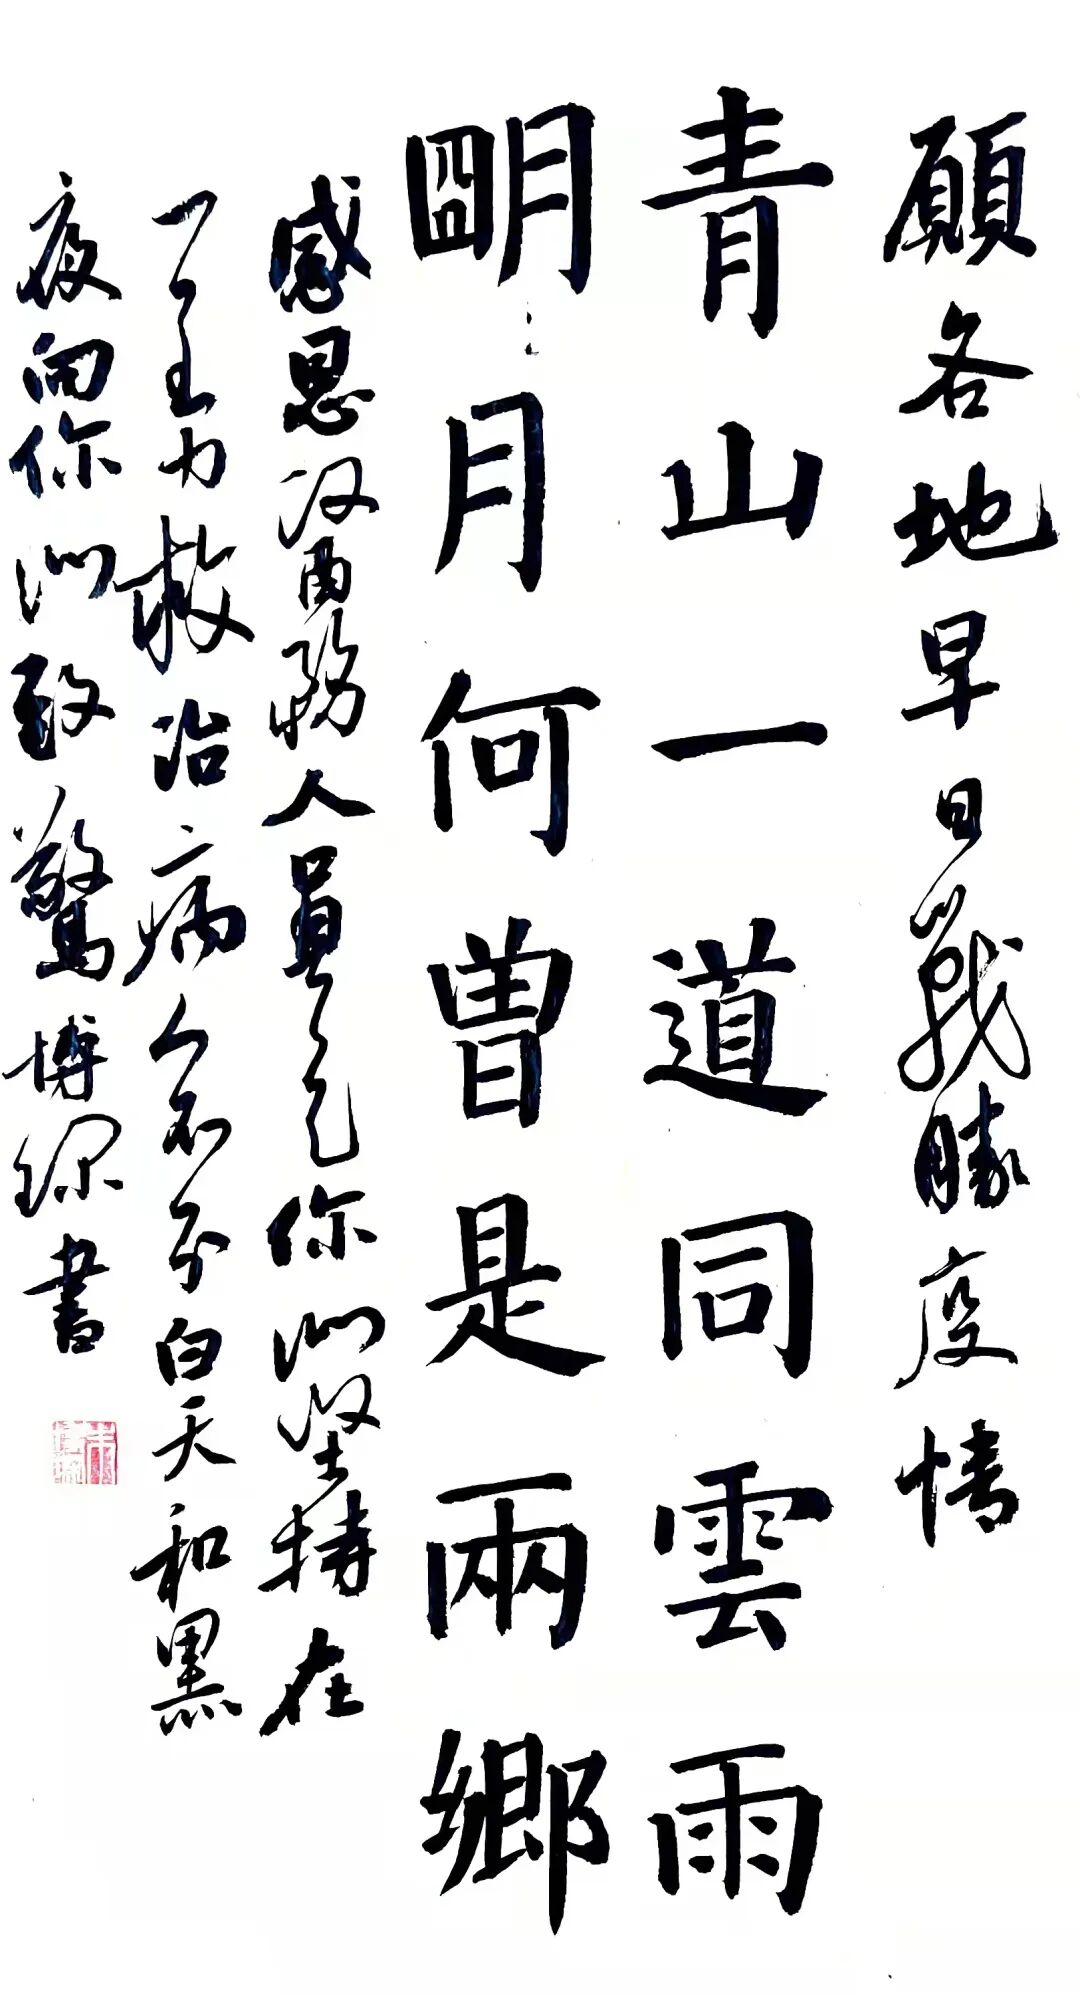 願各地早日戰勝疫情
青山一道同雲雨
朙月何曾是兩鄉
感恩醫務人員是你們堅持在
一全力救治病人不分白天和黑
夜向你們致驚博琛書